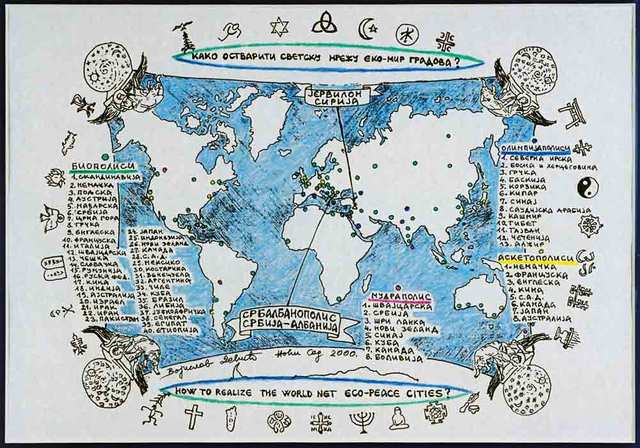 КАКО ОСТВАРИТИ СВЕТСКУ МРЕЖУ ЕКО-МИР ГРАДОВА?
ЈЕРВИЛОН
СИРИЈА
БИОПОЛИСИ
1. СКАНДИНАВИЈА
2. НЕМАЧКА
3. ПОЉСКА
4. АУСТРИЈА
5. МАЂАРСКА
6. СРБИЈА
7. ЦРНА ГОРА
8. ГРЧКА
9. ЕНГЛЕСКА
10. ФРАНЦУСКА
11. ИТАЛИЈА
12. ШВАЈЦАРСКА
13. ЧЕШКА
14. СЛОВАЧКА
15. РУМУНИЈА
16. РУСКА ФЕД.
17. КИНА
18. ИНДИЈА
19. АУСТРАЛИЈА
21. ИРАК
22. ИРАН
23. ПАКИСТАН
24. ЈАПАН
25. ИНДОНЕЗИЈА
26. НОВИ ЗЕЛАНД
27. КАНАДА
28. С.А.Д.
29. МЕКСИКО
30. КОСТАРИКА
31. ВЕНЕЦУЕЛА
32. АРГЕНТИНА
33. ЧИЛЕ
34. КУБА
35. БРАЗИЛ
37. ЈУЖНОАФРИЧКА
38. СЕНЕГАЛ
39. ЕГИПАТ
40. ЕТИОПИЈА
ОЛИМПИЈАПОЛИСИ
1. СЕВЕРНА ИРСКА
2. БОСНА И ХЕРЦЕГОВИНА
3. ГРЧКА
4. БАСКИЈА
5. КОРЗИКА
6. КИПАР
7. СИНАЈ
8. САУДИЈСКА АРАБИЈА
9. КАШМИР
10. ТИБЕТ
11. ТАЈВАН
12. ЧЕЧЕНИЈА
13. АЛЖИР
АСКЕТОПОЛИСИ
1. НЕМАЧКА
2. ФРАНЦУСКА
3. ЕНГЛЕСКА
4. КИНА
5. С.А.Д.
6. КАНАДА
7. ЈАПАН
8. АУСТРАЛИЈА
МУДРАПОЛИС
1. ШВАЈЦАРСКА
2. СРБИЈА
3. ШРИ ЛАНКА
4. НОВИ ЗЕЛАНД
5. СИНАЈ
6. КУБА
7. КАНАДА
8. БОЛИВИЈА
СРБАЛБАНОПОЛИС
СРБИЈА-АЛБАНИЈА
Нови Сад 2000.
HOW TO REALIZE THE WORLD NET ECO-PEACE CITIES?